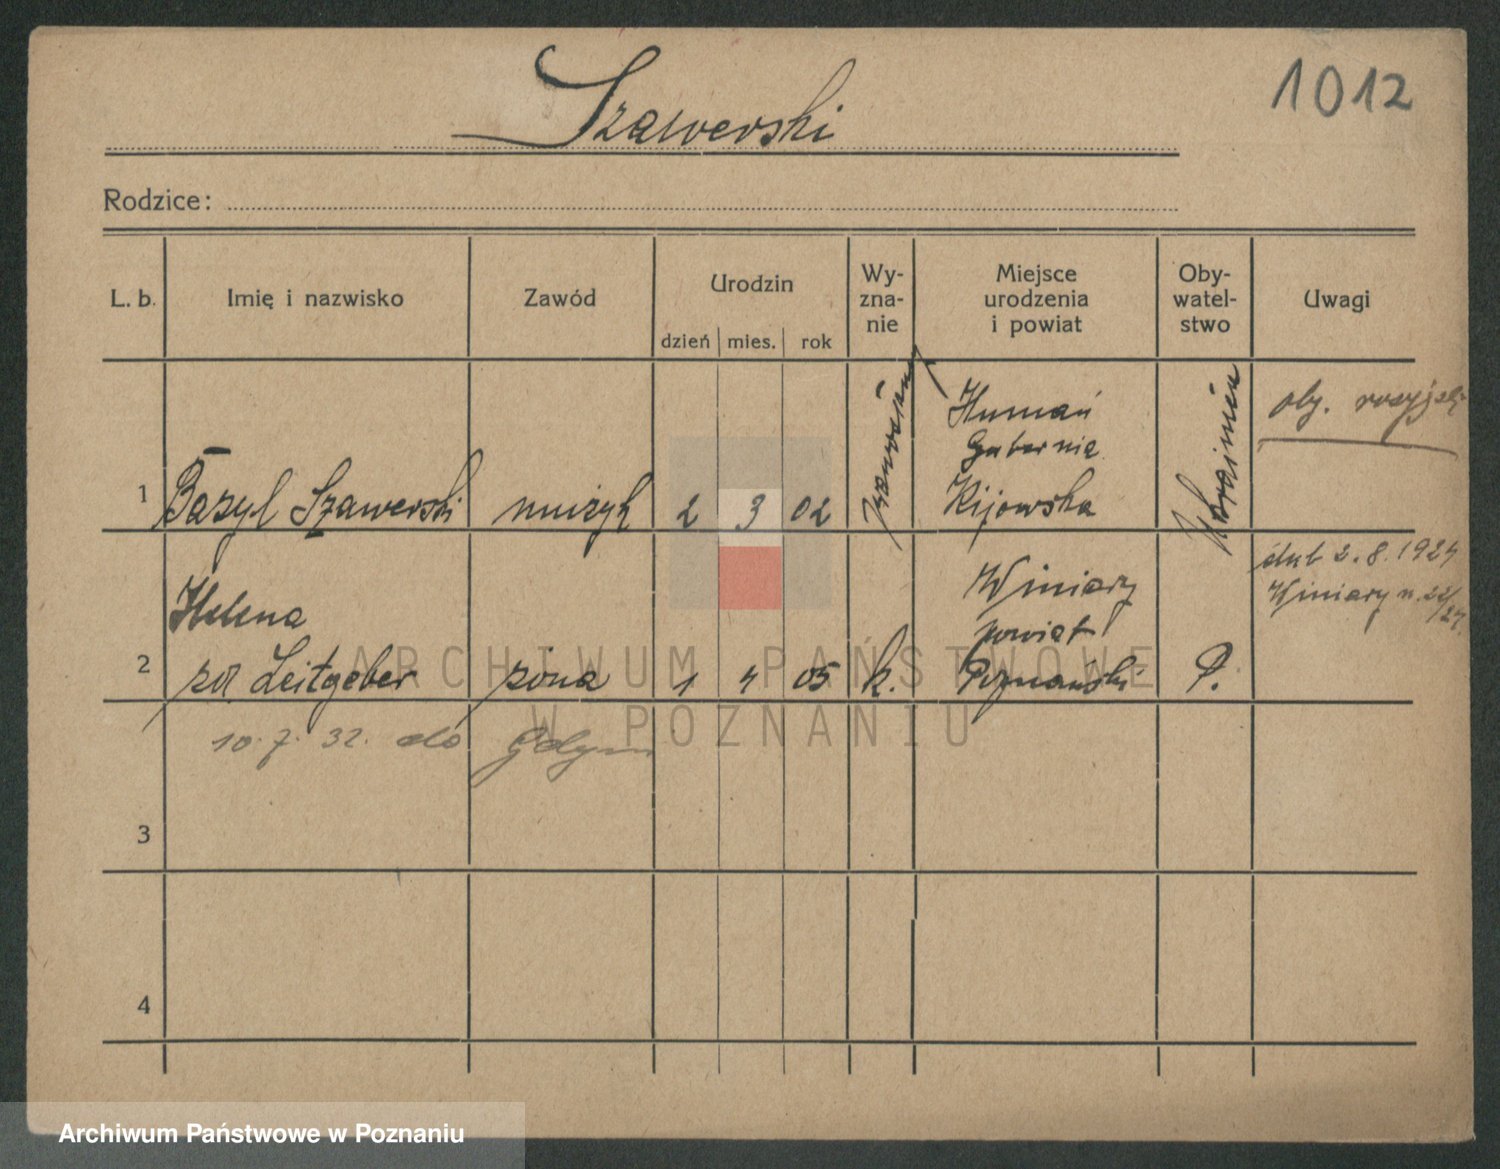 1012
Szawerski
Rodzice:
L. b.
Imię i nazwisko
Zawód
Urodzin
dzień
mies.
rok
Wy-
zna-
nie
Miejsce
urodzenia
i powiat
Oby-
watel-
stwo
Uwagi
1
Bazyl Szawerski
muzyk
2
3
02
Humań
Gubernia
Kijowska
oby. rosyjsk.
2
Helena
zd Leitgeber
żona
1
4
05
k.
Winiary
powiat
Poznański
P.
ślub 2.8.1924
Winiary n. 22/24.
10.7.32. do Gdyni
3
4
ARCHIWUM PAŃSTWOWE
W POZNANIU
Archiwum Państwowe w Poznaniu